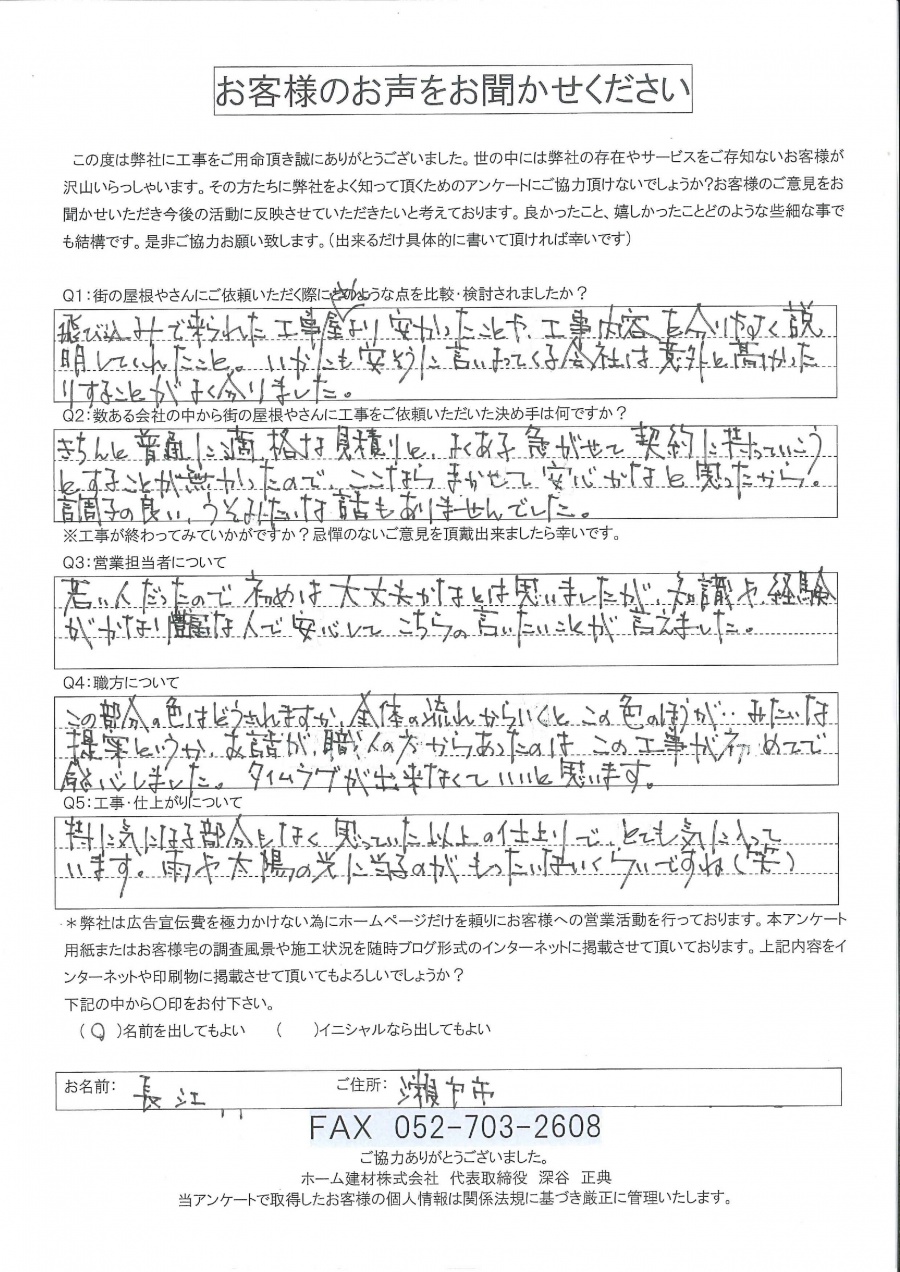 お客様のお声をお聞かせください
この度は弊社に工事をご用命頂き誠にありがとうございました。世の中には弊社の存在やサービスをご存知ないお客様が
沢山いらっしゃいます。その方たちに弊社をよく知って頂くためのアンケートにご協力頂けないでしょうか?お客様のご意見をお
聞かせいただき今後の活動に反映させていただきたいと考えております。良かったこと、嬉しかったことどのような些細な事で
も結構です。是非ご協力お願い致します。(出来るだけ具体的に書いて頂ければ幸いです)
Q1:街の屋根やさんにご依頼いただく際にどのような点を比較・検討されましたか?
飛び込みで来られた工事屋より安かったことや、工事内容を分りやすく説
明してくれたこと。いかにも安そうに言いよってくる会社は意外と高かった
りすることがよく分りました。
Q2:数ある会社の中から街の屋根やさんに工事をご依頼いただいた決め手は何ですか?
きちんと普通に適格な見積りと、よくある急がせて契約に持っていこう
とすることが無かったので、ここならまかせて安心かなと思ったから。
言調子の良い、うそみたいな話もありませんでした。
※工事が終わってみていかがですか?忌憚のないご意見を頂戴出来ましたら幸いです。
Q3:営業担当者について
若い人だったので初めは大丈夫かなとは思いましたが、知識や、経験
がかなり豊富な人で安心してこちらの言いたいことが言えました。
Q4:職方について
この部分の色はどうされますか、全体の流れからいくとこの色のほうが‥みたいな
提案というか、お話が、職人の方からあったのはこの工事が初めてで
感心しました。タイムラグが出来なくていいと思います。
Q5:工事・仕上がりについて
特に気になる部分もなく思っていた以上の仕上りで、とても気に入って
います。雨や太陽の光に当るのがもったいないくらいですね(笑)
*弊社は広告宣伝費を極力かけない為にホームページだけを頼りにお客様への営業活動を行っております。本アンケート
用紙またはお客様宅の調査風景や施工状況を随時ブログ形式のインターネットに掲載させて頂いております。上記内容をイ
ンターネットや印刷物に掲載させて頂いてもよろしいでしょうか?
下記の中から〇印をお付下さい。
(〇)名前を出してもよい ( )イニシャルなら出してもよい
お名前: 長江 ご住所: 瀬戸市
FAX 052-703-2608
ご協力ありがとうございました。
ホーム建材株式会社 代表取締役 深谷 正典
当アンケートで取得したお客様の個人情報は関係法規に基づき厳正に管理いたします。